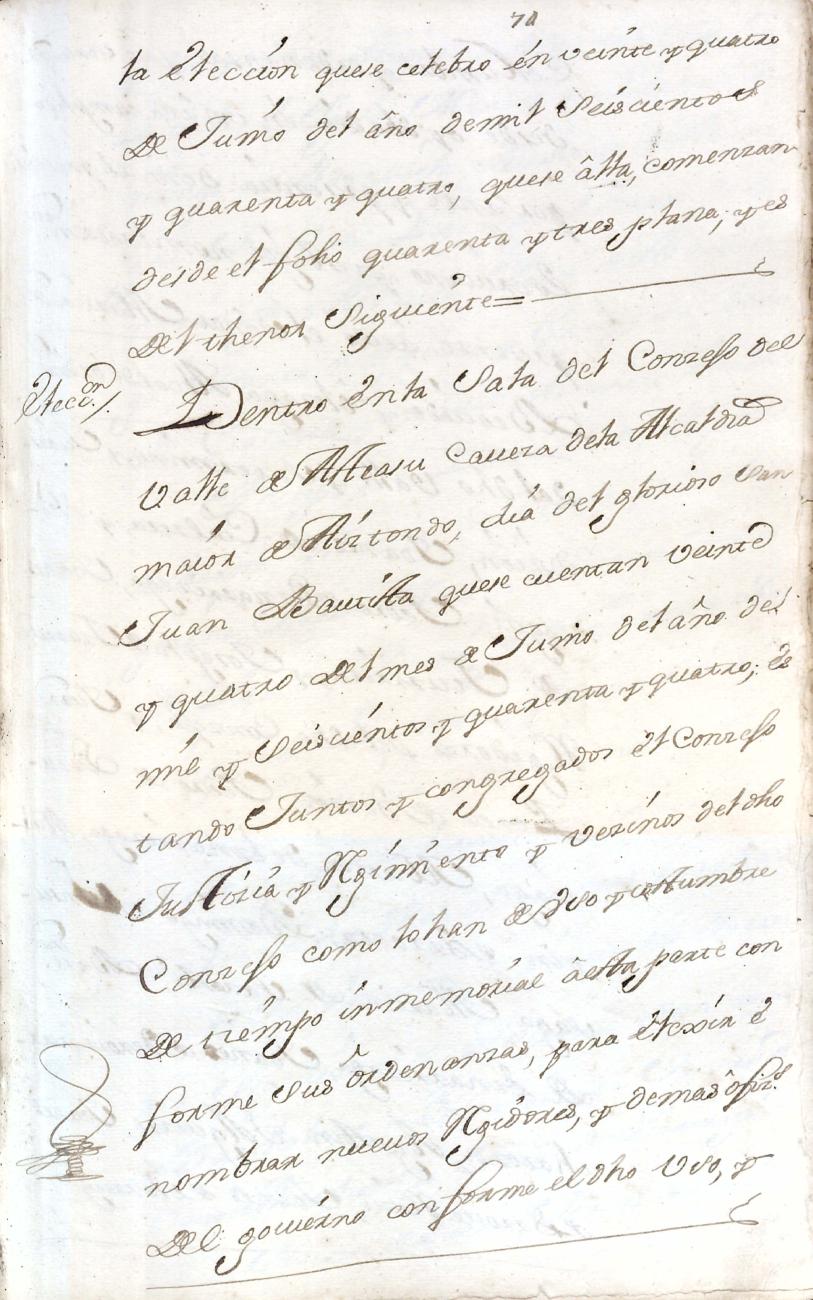 71
la Elección quese celebro én veinte y quatro
De Junio del año demil Seiscientos
y quarenta y quatro, quese álla, comenzan
desde el folio quarenta y tres plana, y es
Del thenor Siguiente=
Elecc.on/.
Dentro en la Sala del Concejo del
Valle de Atteasu Caueza dela Alcaldia
maiór de Aiztondo, dia del glorioso San
Juan Bautista quese cuentan veinte
y quatro del mes de Junio del año de
mil y Seiscientos y quarenta y quatro; es
tando Juntos y congregados él Concejo
Justicia y Regimiento y vezinos del dho
Concejo como lo han de vso y costumbre
De tiempo inmemorial áesta parte con
forme sus ordenanzas, para élexir é
nombrar nueuos Regidores, y demas ofiz.s
Del gouierno conforme el dho vso, y